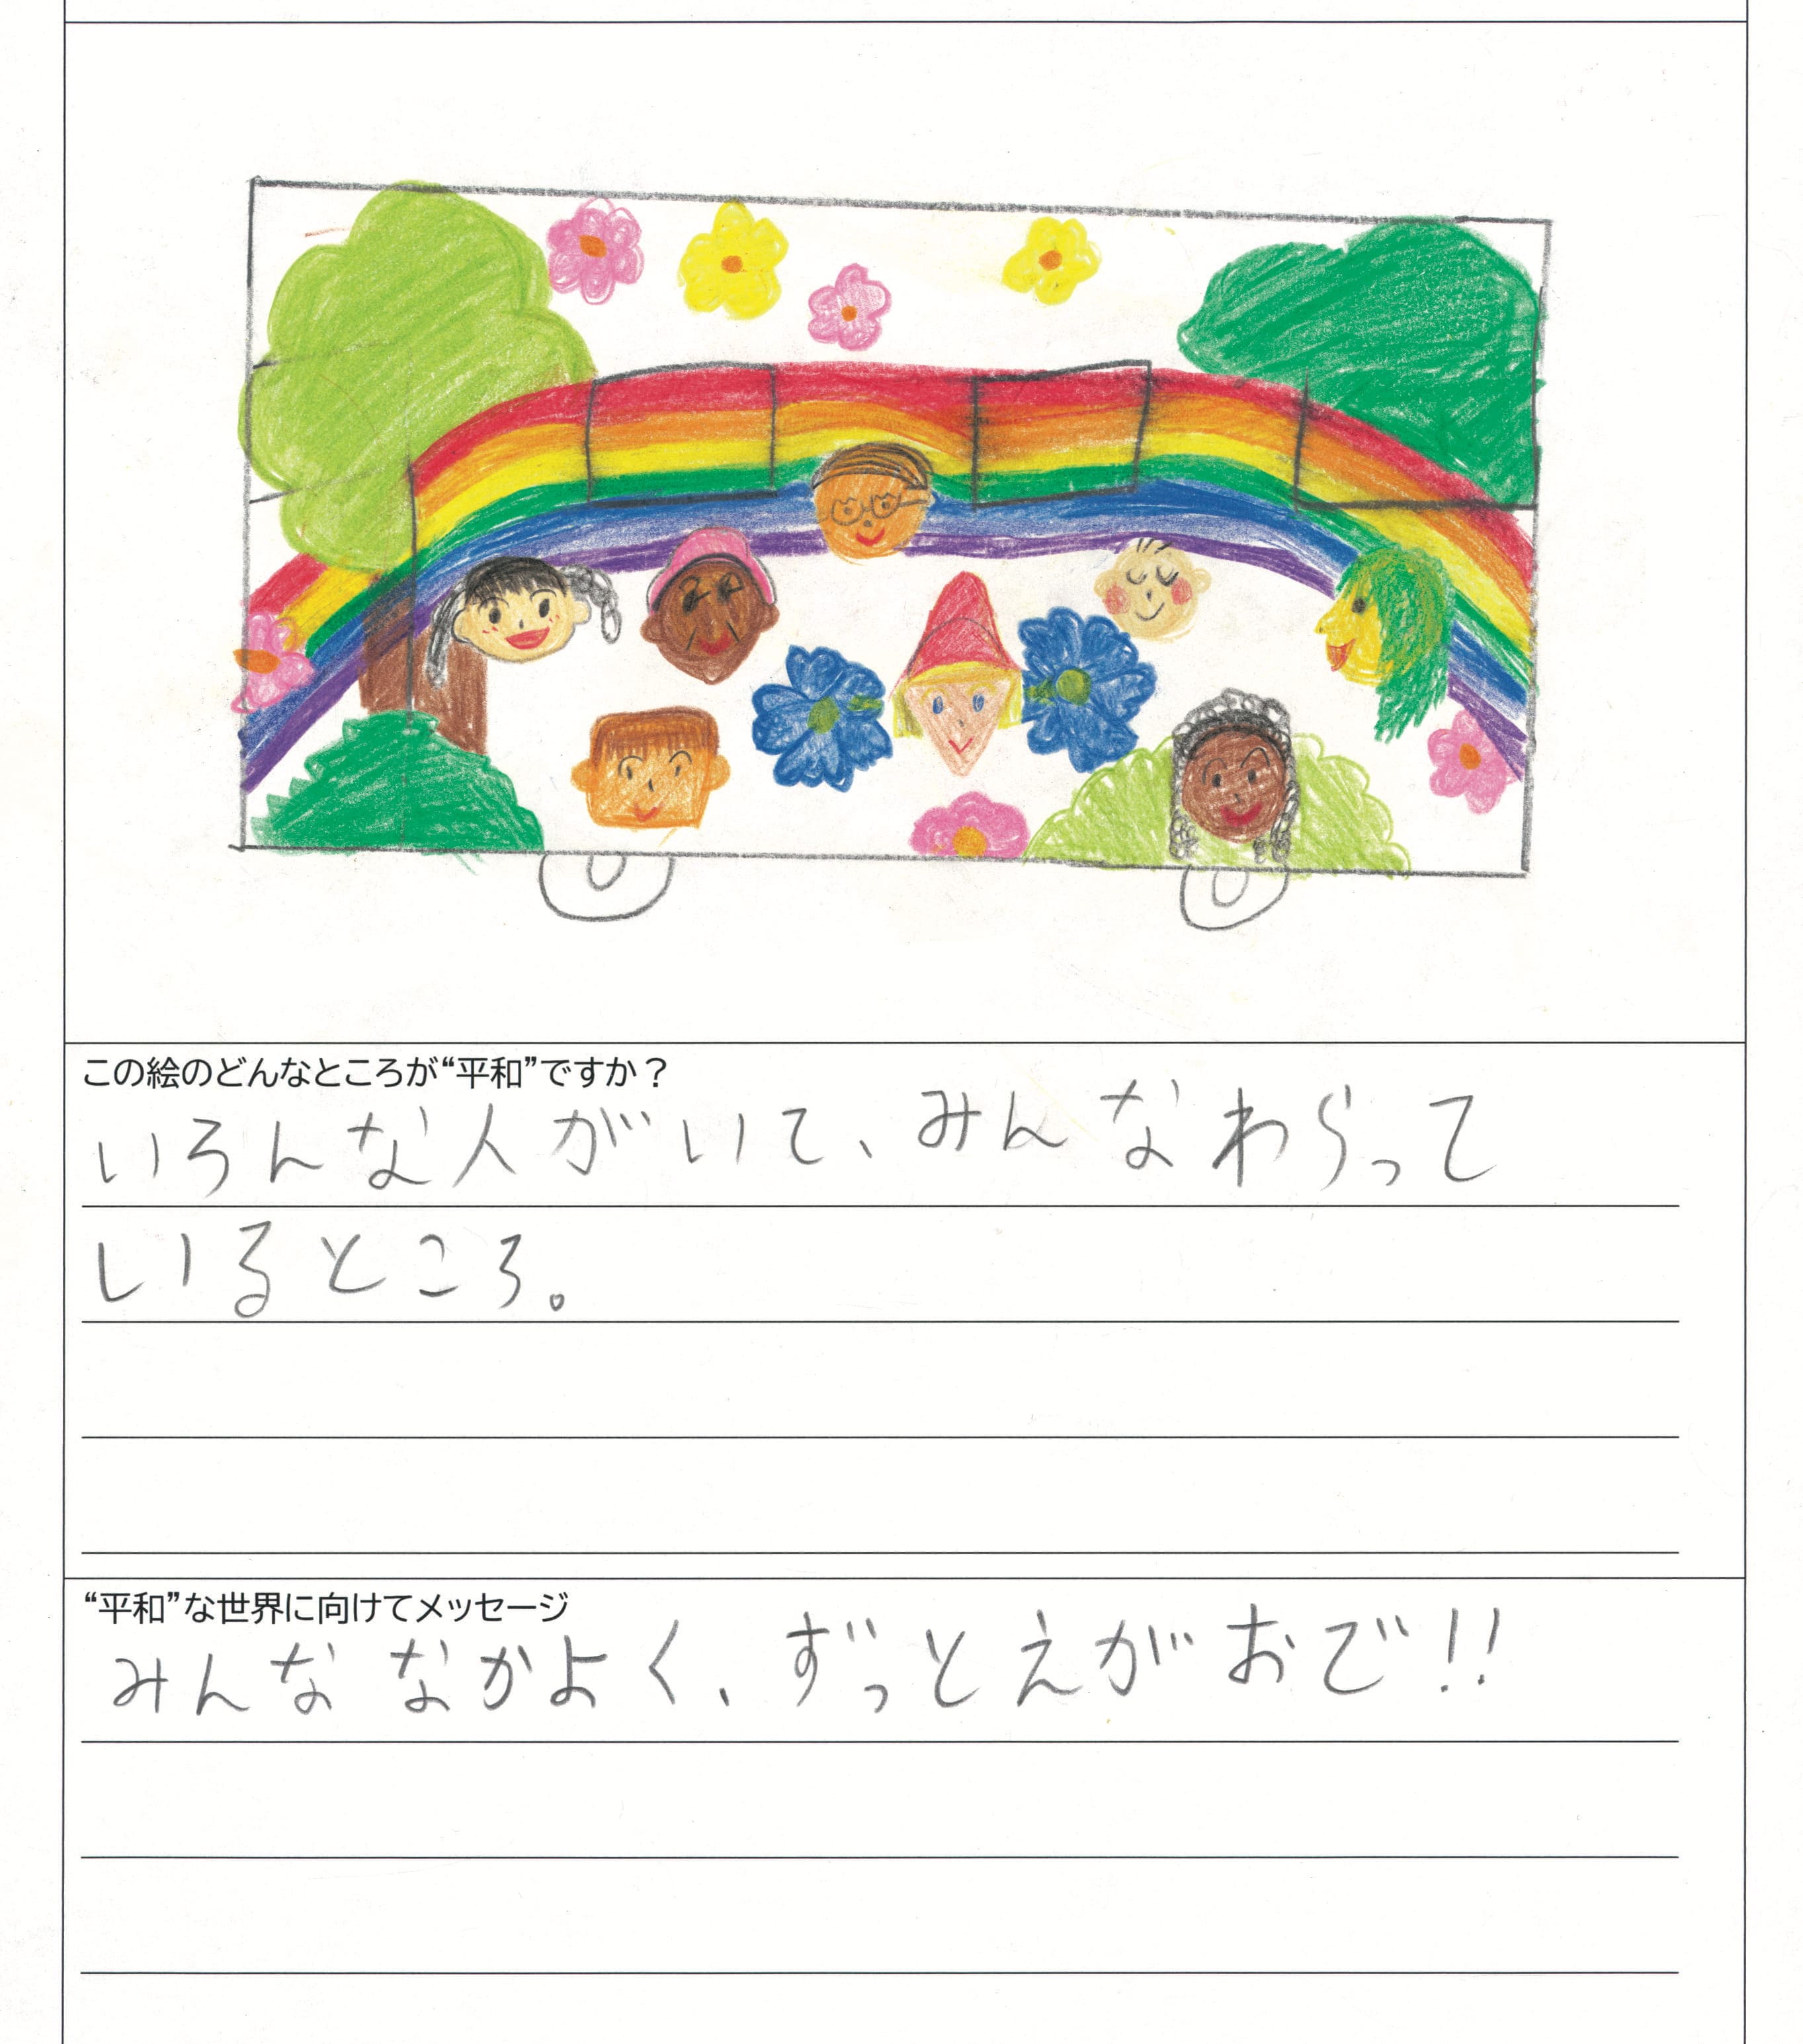 この絵のどんなところが“平和”ですか？
いろんな人がいて、みんなわらって
いるところ。
“平和”な世界に向けてメッセージ
みんな なかよく、ずっとえがおで!!